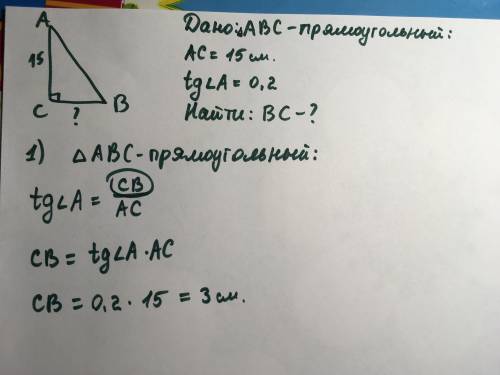 A
15
C
B
?
Дано: △ABC - прямоугольный:
AC = 15 см.
tg∠A = 0,2
Найти: BC - ?
1) △ABC - прямоугольный:
tg∠A = CB/AC
CB = tg∠A · AC
CB = 0,2 · 15 = 3 см.